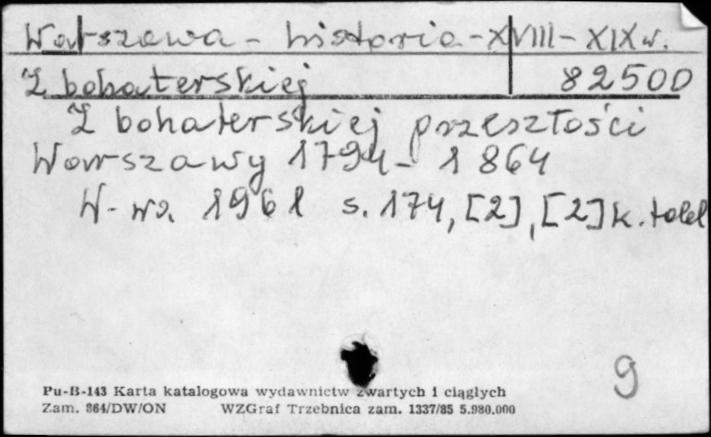 Warszawa - historia - XVIII - XIX w.
Z bohaterskiej 82500
Z bohaterskiej przeszłości
Warszawy 1794 - 1864
W-wa 1961 s. 174, [2], [2] k. tabl
9
Pu-B-143 Karta katalogowa wydawnictw zwartych i ciągłych
Zam. 864/DW/ON WZGraf Trzebnica zam. 1337/85 5.980.000